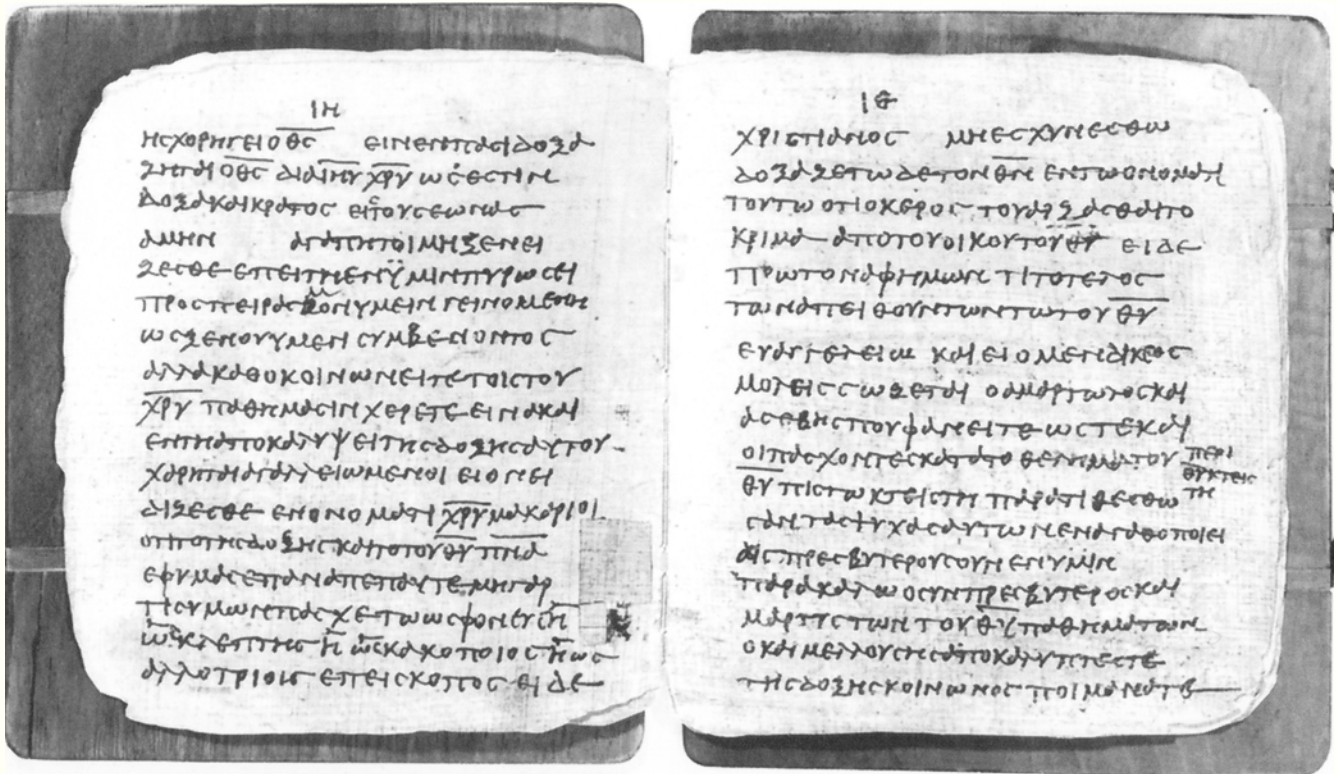 ΙΗ
ΗϹΧΟΡΗΓΕΙΟΘ̅Ϲ̅ ΕΙΝΕΝΠΑϹΙΔΟΞΑ
ΖΗΤΑΙΟΘ̅Ϲ̅ ΔΙΑΙ̅Η̅Υ̅ Χ̅Ρ̅Υ̅ ΩϹΕϹΤΙΝ
ΔΟΞΑΚΑΙΚΡΑΤΟϹ ΕΙϹΤΟΥϹΕΩΝΑϹ
ΑΜΗΝ ΑΓΑΠΗΤΟΙΜΗΞΕΝΕΙ
ΖΕϹΘΕ ΕΠΕΙΤΗΕΝΫΜΙΝΠΥΡΩϹΕΙ
ΠΡΟϹΠΕΙΡΑϹΜΟΝΥΜΕΙΝΓΕΙΝΟΜΕΝΗ
ΩϹΞΕΝΟΥΥΜΕΝΙϹΥΜΒΕΝΟΝΤΟϹ
ΑΛΛΑΚΑΘΟΚΟΙΝΩΝΕΙΤΕΤΟΙϹΤΟΥ
Χ̅Ρ̅Υ̅ ΠΑΘΗΜΑϹΙΝΧΕΡΕΤΕ ΕΙΝΑΚΑΙ
ΕΝΤΗΑΠΟΚΑΛΥΨΕΙΤΗϹΔΟΞΗϹΑΥΤΟΥ
ΧΑΡΗΤΑΙΑΓΑΛΛΕΙΩΜΕΝΟΙ ΕΙΟΝΕΙ
ΔΙΖΕϹΘΕ ΕΝΟΝΟΜΑΤΙΧ̅Ρ̅Υ̅ΜΑΚΑΡΙΟΙ
ΟΤΙΤΟΤΗϹΔΟΞΗϹΚΑΙΤΟΤΟΥΘ̅Υ̅Π̅Ν̅Α̅
ΕΦΥΜΑϹΕΠΑΝΑΠΕΠΑΥΤΕ ΜΗΓΑΡ
ΤΙϹΥΜΩΝΠΑϹΧΕΤΩΩϹΦΟΝΕΥϹΗ
ΩϹΚΛΕΠΤΗϹ Η ΩϹΚΑΚΟΠΟΙΟϹ ΗΩϹ
ΑΛΛΟΤΡΙΟΙϹ ΕΠΕΙϹΚΟΠΟϹ ΕΙΔΕ
ΙΘ
ΧΡΙϹΤΙΑΝΟϹ ΜΗΕϹΧΥΝΕϹΘΩ
ΔΟΞΑΖΕΤΩΔΕΤΟΝΘ̅Ν̅ ΕΝΤΩΟΝΟΜΑΤΙ
ΤΟΥΤΩ ΟΤΙΟΚΕΡΟϹ ΤΟΥΑΡΞΑϹΘΑΙΤΟ
ΚΡΙΜΑ ΑΠΟΤΟΥΟΙΚΟΥΤΟΥΘ̅Υ̅ ΕΙΔΕ
ΠΡΩΤΟΝΑΦΗΜΩΝ ΤΙΤΟΤΕΛΟϹ
ΤΩΝΑΠΕΙΘΟΥΝΤΩΝΤΩΤΟΥΘ̅Υ̅
ΕΥΑΓΓΕΛΕΙΩ ΚΑΙΕΙΟΜΕΝΔΙΚΕΟϹ
ΜΟΛΕΙϹϹΩΖΕΤΑΙ ΟΑΜΑΡΤΩΛΟϹΚΑΙ
ΑϹΕΒΗϹΠΟΥΦΑΝΕΙΤΕ ΩϹΤΕΚΑΙ
ΟΙΠΑϹΧΟΝΤΕϹΚΑΤΑΤΟΘΕΛΗΜΑΤΟΥ
ΠΕΡΙ
ΘΥΚΤΕΙϹ
ΤΗ
Θ̅Υ̅ ΠΙϹΤΩΚΤΕΙϹΤΗ ΠΑΡΑΤΙΘΕϹΘΩ
ϹΑΝΤΑϹΨΥΧΑϹΑΥΤΩΝΕΝΑΓΑΘΟΠΟΙΕΙ
ΑΙϹΠΡΕϹΒΥΤΕΡΟΥϹΟΥΝΕΝΥΜΙΝ
ΠΑΡΑΚΑΛΩΟϹΥΝΠΡΕϹΒΥΤΕΡΟϹΚΑΙ
ΜΑΡΤΥϹΤΩΝΤΟΥΘ̅Υ̅ΠΑΘΗΜΑΤΩΝ
ΟΚΑΙΜΕΛΛΟΥϹΗϹΑΠΟΚΑΛΥΠΤΕϹΤΕ
ΤΗϹΔΟΞΗϹΚΟΙΝΩΝΟϹ ΠΟΙΜΑΝΑΤΕ